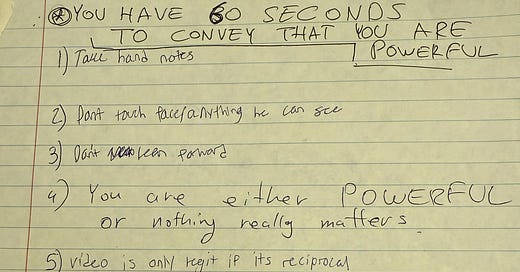 YOU HAVE 60 SECONDS
TO CONVEY THAT YOU ARE
POWERFUL
1) Take hand notes
2) Dont touch face/anything he can see
3) Dont lean forward
4) You are either POWERFUL
or nothing really matters.
5) video is only legit if its reciprocal